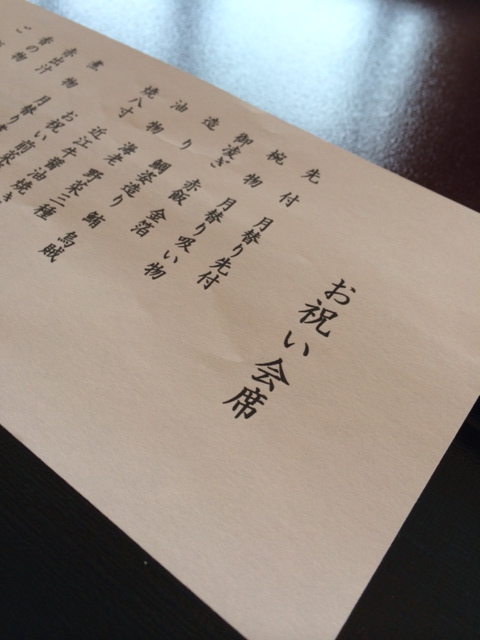 お祝い会席
先付 月替り先付
椀物 月替り吸い物
御凌ぎ 赤飯 金箔
造り 鯛姿造り 鮪 烏賊
油物 海老 野菜三種
焼八寸 近江牛醤油焼き
お祝い前菜
煮物 月替り
出汁
香の物
ご